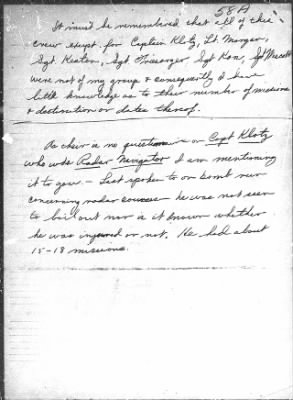 58A
It must be remembered that all of this
crew except for Captain Klotz, Lt. Morgan,
Sgt Keaton, Sgt Sgt Kern, Sgt
were not of my group & consequently I have
little knowledge as to their number of missions
& destination or dates thereof.
As there is no question on Capt Klotz
who was Radar Navigator I am mentioning
it to you - Last spoken to on bomb run
concerning radar course he was not seen
to bail out nor is it known whether
he was injured or not. He had about
15-18 missions.